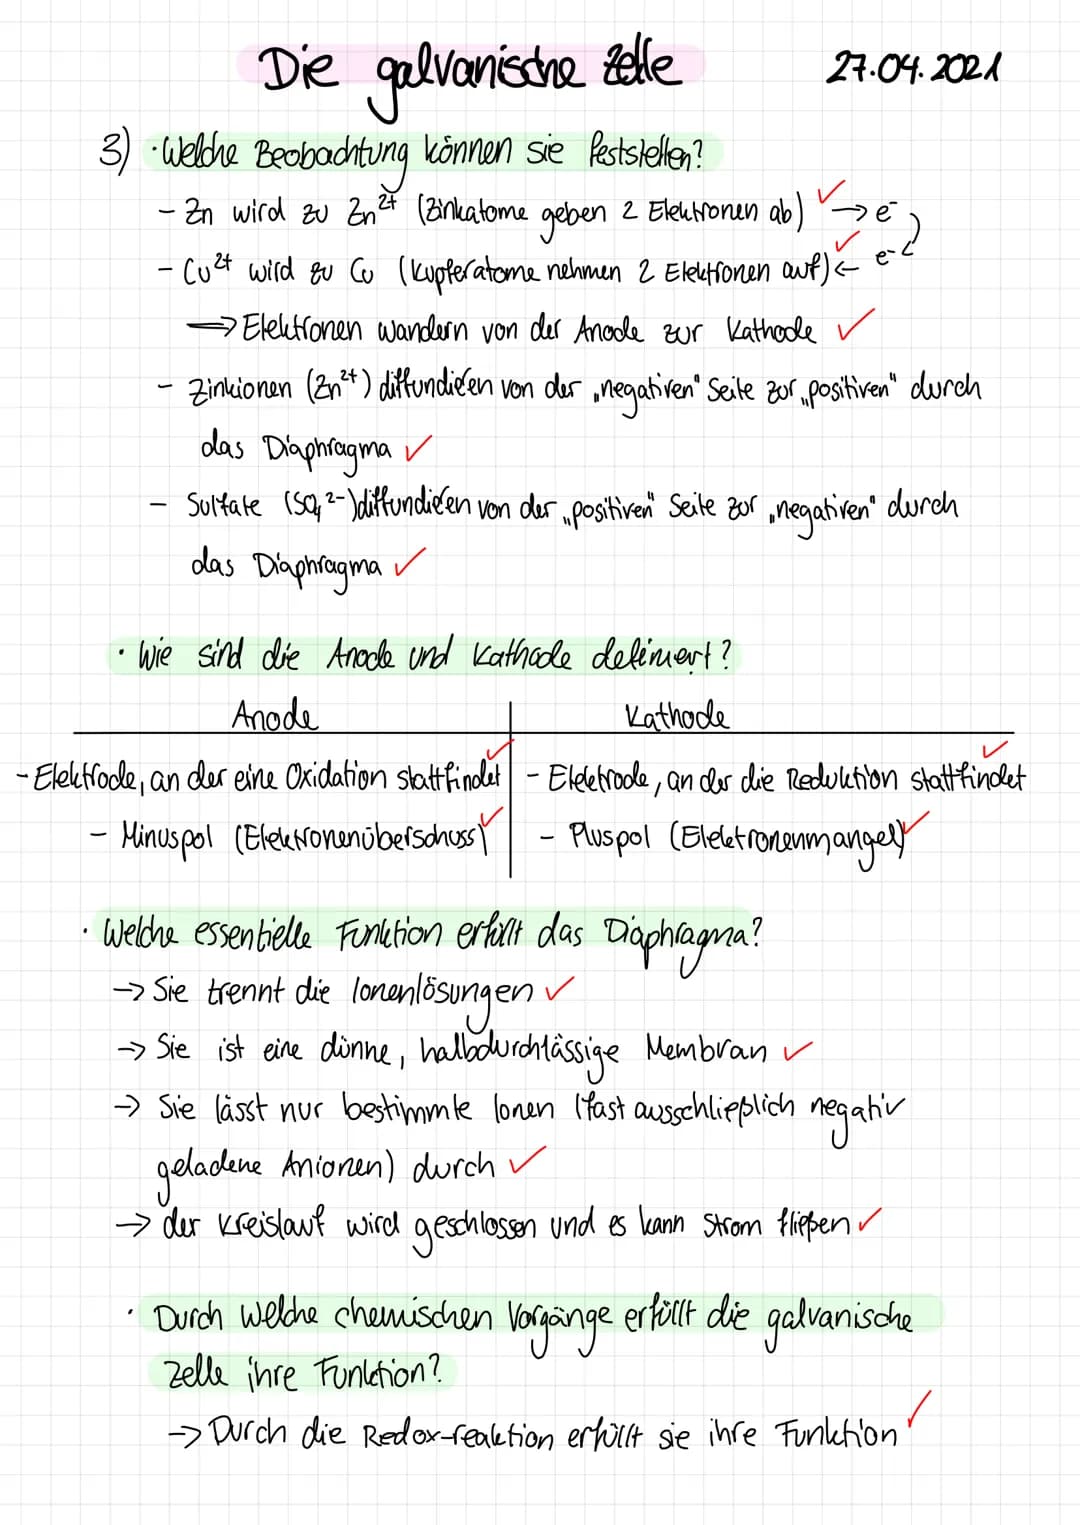 Die galvanische Zelle 27.04.2021
3) · Welche Beobachtung können sie feststellen?
- Zn wird zu Zn²⁺ (Zinkatome geben 2 Elektronen ab) ✓ → e⁻
- Cu²⁺ wird zu Cu (Kupferatome nehmen 2 Elektronen auf) ✓ ← e⁻
⇒ Elektronen wandern von der Anode zur Kathode ✓
- Zinkionen (Zn²⁺) diffundieren von der „negativen" Seite zur „positiven" durch
das Diaphragma ✓
- Sulfate (SO₄²⁻) diffundieren von der „positiven" Seite zur „negativen" durch
das Diaphragma ✓
· Wie sind die Anode und Kathode definiert?
Anode Kathode
- Elektrode, an der eine Oxidation stattfindet ✓ - Elektrode, an der die Reduktion stattfindet ✓
- Minuspol (Elektronenüberschuss) ✓ - Pluspol (Elektronenmangel) ✓
· Welche essentielle Funktion erfüllt das Diaphragma?
→ Sie trennt die Ionenlösungen ✓
→ Sie ist eine dünne, halbdurchlässige Membran ✓
→ Sie lässt nur bestimmte Ionen (fast ausschließlich negativ
geladene Anionen) durch ✓
→ der Kreislauf wird geschlossen und es kann Strom fließen ✓
· Durch welche chemischen Vorgänge erfüllt die galvanische
Zelle ihre Funktion?
→ Durch die Redox-reaktion erfüllt sie ihre Funktion ✓